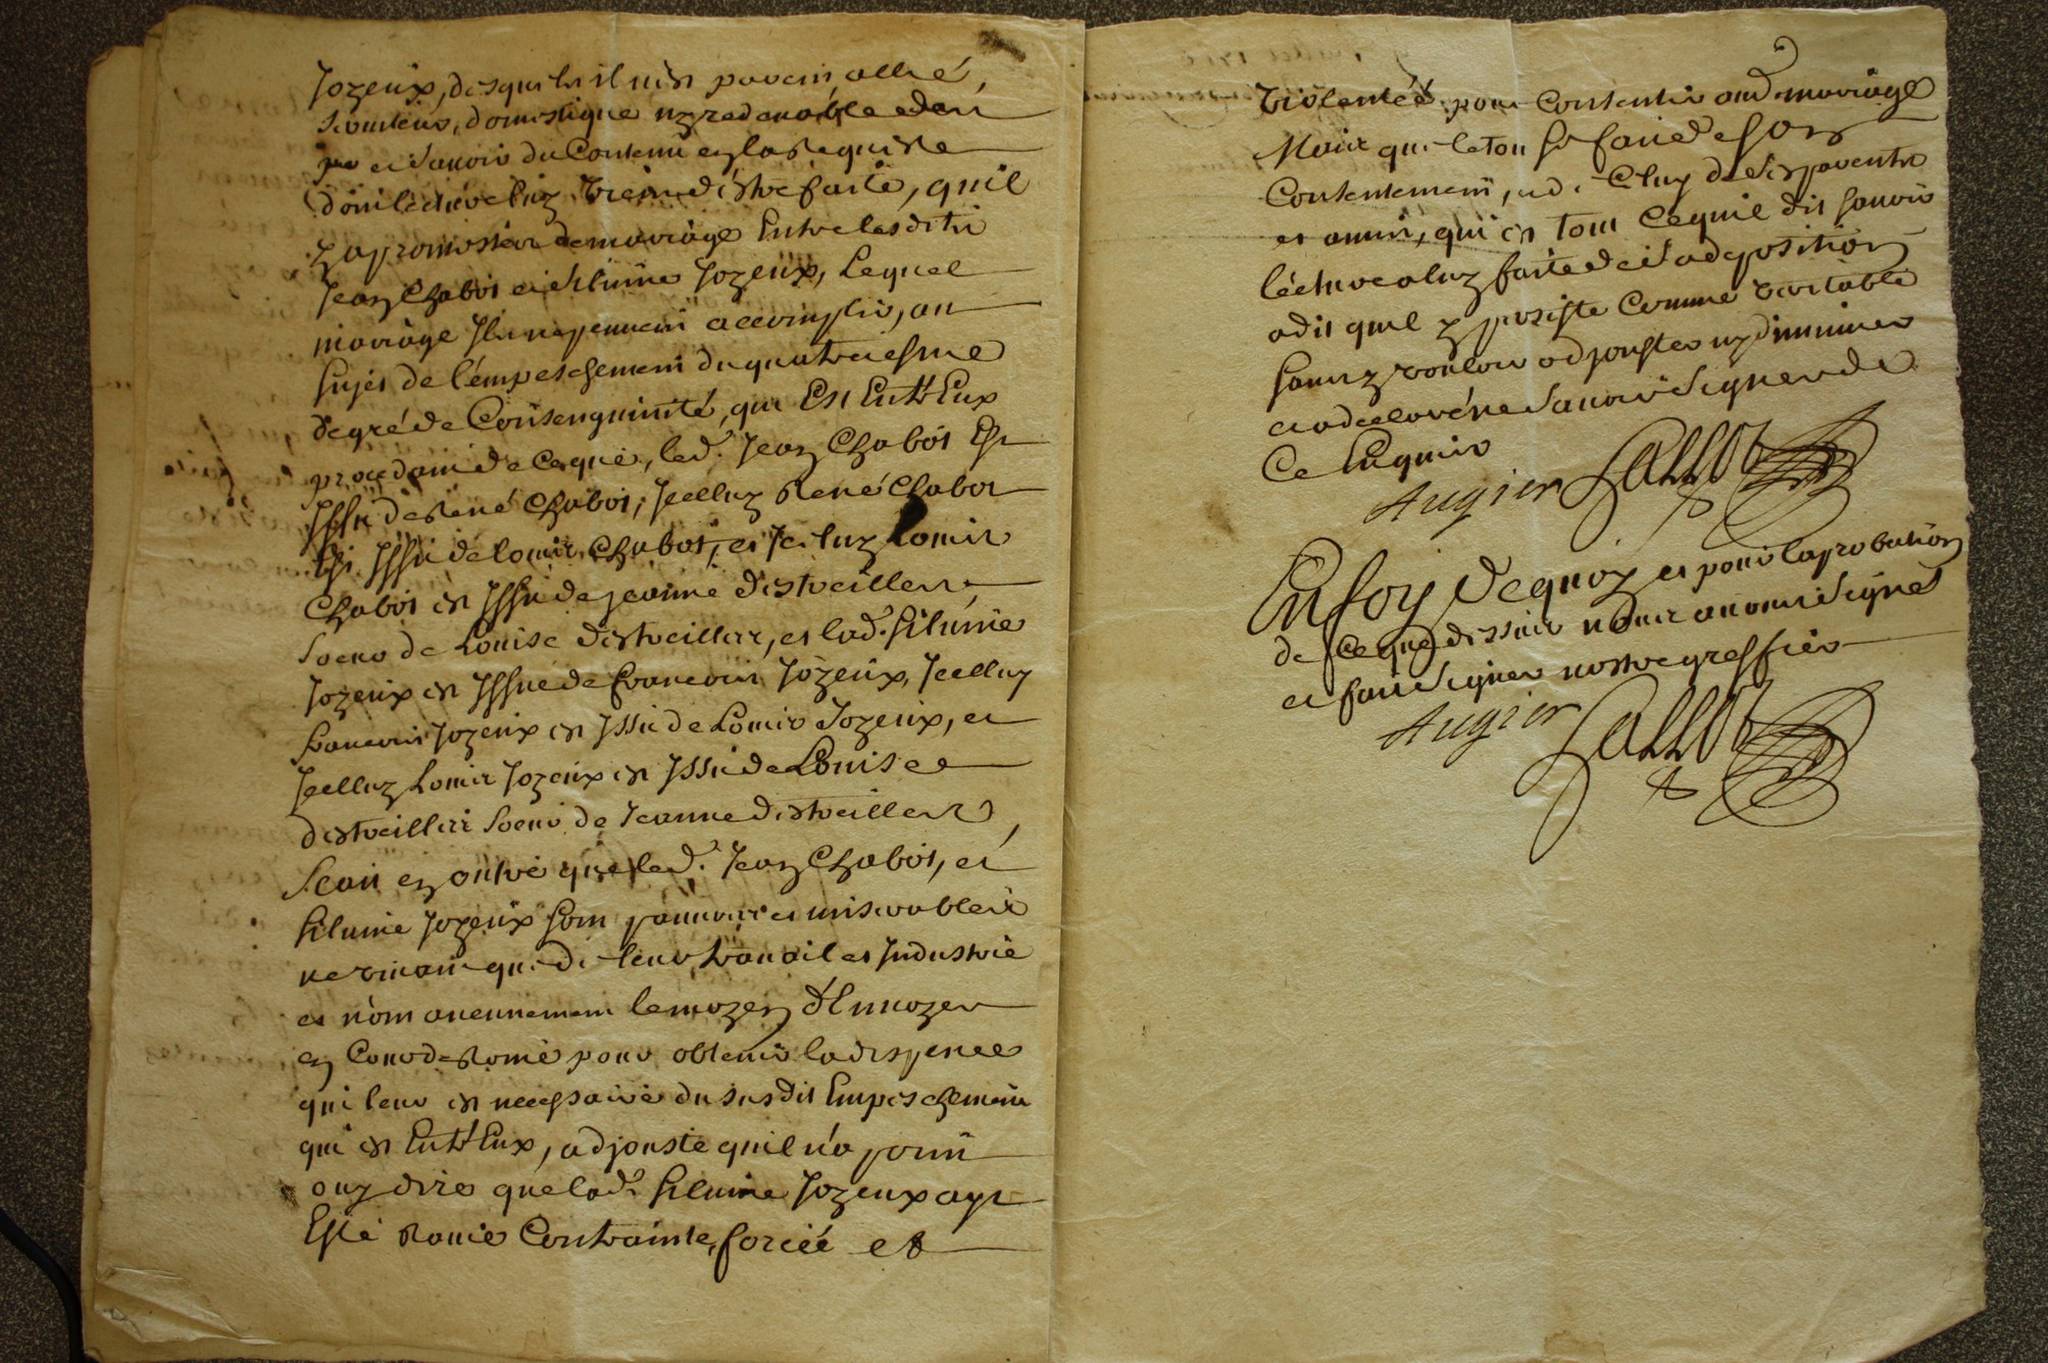 Jozeux, desquels il n'est parent allié,
serviteur, domestique ny redevable adeu
et scavoir du Contenu en la Requiste
dont lecture luy vien d'estre faite, qu'il
y a promosse de mariage Entre lesdits
Jean Chabot et Silvine Jozeux, Lequel
mariage Ils ne peuvent accomplir, au
sujet de l'émpeschement du quatriesme
degré de Consenguinité, qui Est Entr'Eux
procedant de ceque, led. Jean Chabot Est
Issu de René Chabot, Icelluy René Chabot
Est Issu de Louis Chabot, et Iceluy Louis
Chabot est Issu de jeanne distreillers,
soeur de Louise distreillers, et lad. Silvine
Jozeux est Issüe de francois Jozeux, Icelluy
francois Jozeux est Issu de Louis Jozeux, et
Icelluy Louis Jozeux est Issu de Louise
distreillers soeur de Jeanne distreillers,
Scait en outre que led. Jean Chabot, et
Silvine Jozeux sont pauvres et miserables
ne vivant que de leur travail et Industrie
et n'ont aucunement le moyen d'Envoyer
en Cour de Rome pour obtenir la dispence
qui leur est necessaire du susdit Empeschement
qui est Entr'Eux, adjouste quil n'a point
ouy dire que lad. Silvine Jozeux ayt
Esté Ravie Contrainte, forcée et
violentée pour Consentir aud. mariage
Mais que le tout se fait de son
Consentement, et de Celuy de ses parents
et amis, qui est tout Cequil dit scavoir
lécture a luy faite de sa deposition
a dit quil y persiste Comme veritable
sans y vouloir adjouster ny diminuer
et a declaré ne scavoir signer de
Ce Enquis
Augier Gallot
En foy dequoy et pour laprobation
de ceque dessus nous avons signé
et fait signer nostre greffier
Augier Gallot